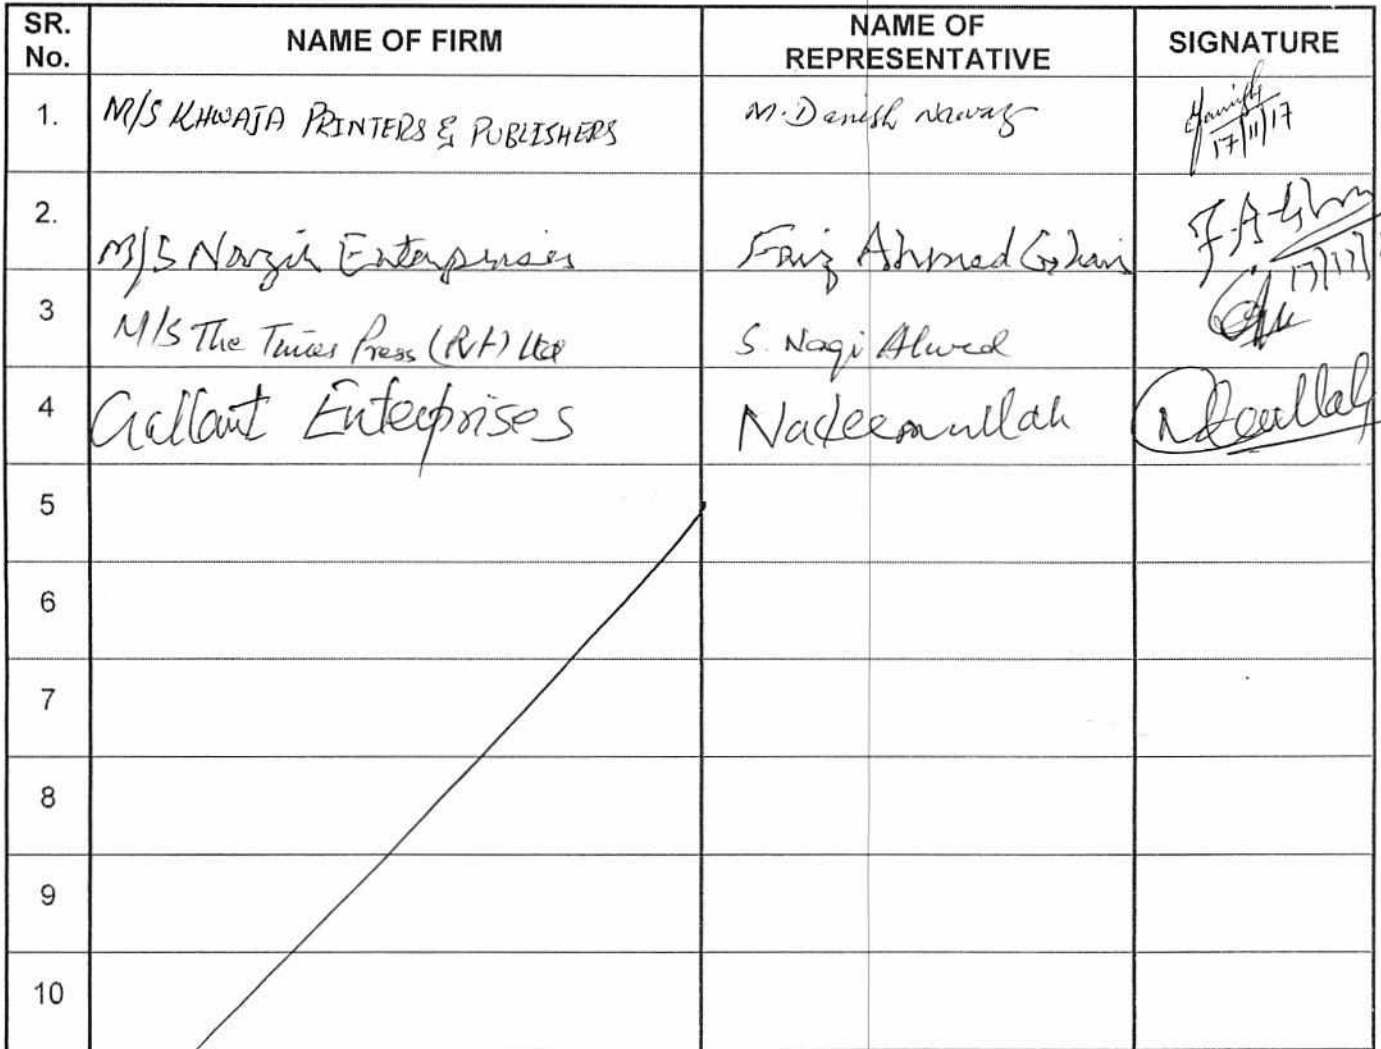 SR. No. NAME OF FIRM NAME OF REPRESENTATIVE SIGNATURE
1. M/S KHWAJA PRINTERS & PUBLISHERS M. Danish Nawaz Danish 17/11/17
2. M/S Nazir Enterprises Faiz Ahmed Ghani
3 M/S The Times Press (Pvt) Ltd S. Naqi Ahmed
4 Gallant Enterprises Nadeemullah
5
6
7
8
9
10